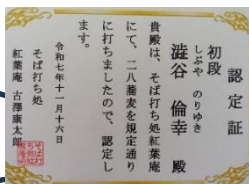 認定証
初段
しぶや のりゆき
澁谷 倫幸 殿
貴殿は、そば打ち処紅葉庵
にて、二八蕎麦を規定通り
に打ちましたので、認定し
ます。
令和七年十一月十六日
そば打ち処
紅葉庵 古澤康太郎